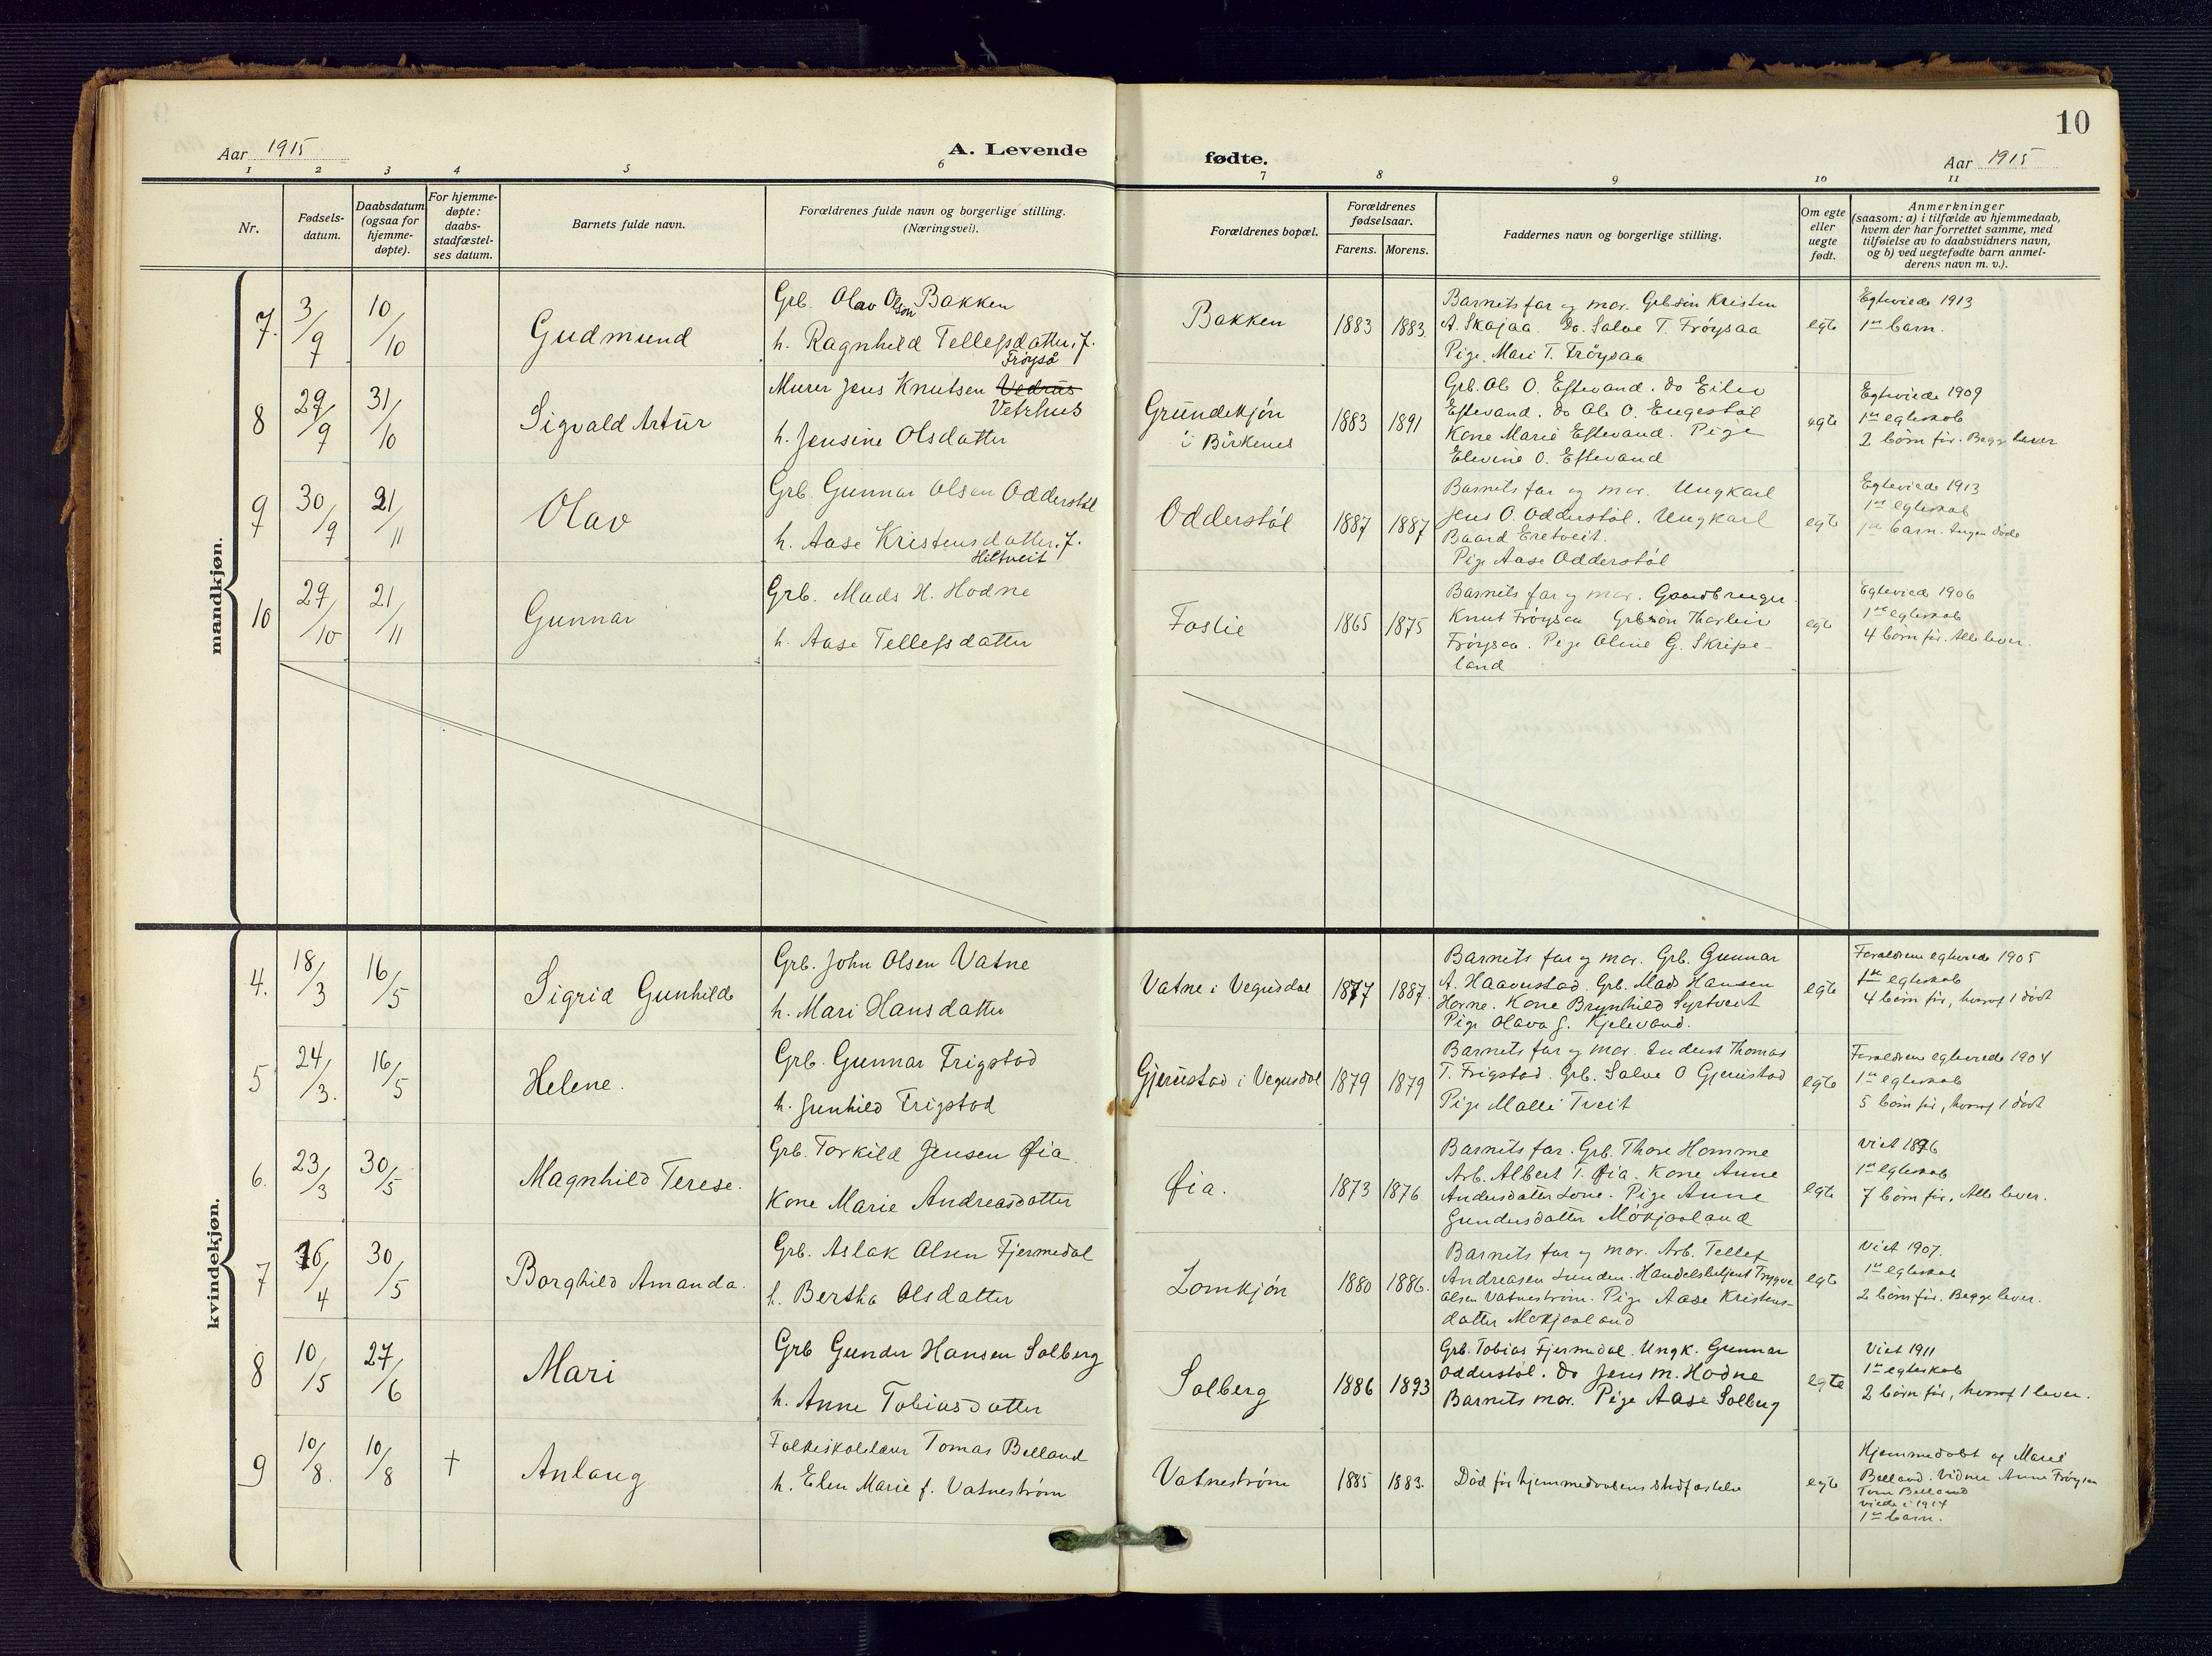 10
Aar 1915
A. Levende
fødte.
Aar 1915
1 2 3 4 5 6 7 8 9 10 11
Nr.
Fødsels-
datum.
Daabsdatum
(ogsaa for
hjemme-
døpte).
For hjemme-
døpte:
daabs-
stadfæstel-
ses datum.
Barnets fulde navn.
Forældrenes fulde navn og borgerlige stilling.
(Næringsvei).
Forældrenes bopæl.
Forældrenes
fødselsaar.
Farens. Morens.
Faddernes navn og borgerlige stilling.
Om egte
eller
uegte
født.
Anmerkninger
(saasom: a) i tilfælde av hjemmedaab,
hvem der har forrettet samme, med
tilføielse av to daabsvidners navn,
og b) ved uegtefødte barn anmel-
derens navn m. v.).
mandkjøn.
7.
3/9
10/10
Gudmund
Grb. Olav Olson Bakken
h. Ragnhild Tellefsdatter, f.
Frøyså
Bakken
1883 1883.
Barnets far og mor. Grb.søn Kristen
A. Skajaa. Do. Salve T. Frøysaa
Pige Mari T. Frøysaa
egte
Egteviede 1913
1ste barn.
8
29/9
31/10
Sigvald Artur
Murer Jens Knutsen Vedhus
Vetrhus
h. Jensine Olsdatter
Grundekjøn
i Birkenes
1883 1891
Grb. Ole O. Eftevand. do Eilev
Eftevand. do Ole O. Engestøl
Kone Marie Eftevand. Pige
Elevine O. Eftevand
egte
Egteviede 1909
1ste egteskab
2 børn før. Begge lever
9
30/9
21/11
Olav
Grb. Gunnar Olsen Odderstøl
h. Aase Kristensdatter, f.
Hiltveit
Odderstøl
1887 1887
Barnets far og mor. Ungkarl
Jens O. Odderstøl. Ungkarl
Baard Eretveit.
Pige Aase Odderstøl
egte
Egteviede 1913
1ste egteskab
1ste barn. Ingen døde
10
29/10
21/11
Gunnar
Grb. Mads H. Hodne
h. Aase Tellefsdatter
Foslie
1865 1875
Barnets far og mor. Gaardbruger
Knut Frøysaa Grbsøn Thorleiv
Frøysaa. Pige Oline G. Skripe-
land
egte
Egteviede 1906
1ste egteskab
4 børn før. Alle lever.
kvindekjøn.
4.
18/3
16/5
Sigrid Gunhilde
Grb. John Olsen Vatne
h. Mari Hansdatter
Vatne i Vegusdal
1877 1887.
Barnets far og mor. Grb. Gunnar
A. Haavestad. Grb. Mads Hansen
Horne. Kone Brynhild Syrtveit
Pige Olava G. Kjelevand.
egte
Forældrene egteviede 1905
1ste egteskab
4 børn før, hvoraf 1 dødt
5
24/3.
16/5
Helene.
Grb. Gunnar Frigstad
h. Gunhild Frigstad
Gjerustad i Vegusdal
1879 1879
Barnets far og mor. Inderst Thomas
T. Frigstad. Grb. Salve O Gjerustad
Pige Malli Tveit
egte
Forældrene egteviede 1904
1ste egteskab
5 børn før, hvoraf 1 dødt
6.
23/3
30/5
Magnhild Terese.
Grb. Torkild Jensen Øia
Kone Marie Andreasdatter
Øia.
1873 1876
Barnets far. Grb. Thore Homme
Arb. Albert T. Øia. Kone Anne
Andersdatter Lone. Pige Anne
Gundersdatter Møkjaaland
egte
Viet 1896
1ste egteskab
7 børn før, Alle lever.
7
16/4
30/5
Borghild Amanda.
Grb. Aslak Olsen Fjermedal
h. Bertha Olsdatter
Lomkjøn
1880 1886.
Barnets far og mor. Arb. Tellef
Andreasen Lunden. Handelsbetjent Trygve
Olsen Vatnestrøm. Pige Aase Kristens-
datter Mokjaaland
egte
Viet 1907.
1ste egteskab
2 børn før. Begge lever.
8
10/5
27/6
Mari
Grb Gunder Hansen Solberg
h. Anne Tobiasdatter
Solberg
1886 1893
Grb. Tobias Fjermedal. Ungk. Gunnar
Odderstøl. Do Jens M. Hodne
Barnets mor. Pige Aase Solberg
egte
Viet 1911
1ste egteskab
2 børn før, hvoraf 1 lever.
9
10/8.
10/8
+
Anlaug
Folkeskolelærer Tomas Belland
h. Elen Marie f. Vatnestrøm
Vatnestrøm
1885 1883.
Død før hjemmedaabens stadfæstelse
egte
Hjemmedøbt af Marie
Belland. Vidner Anne Frøysaa
Belland
viede i 1914
1ste barn.